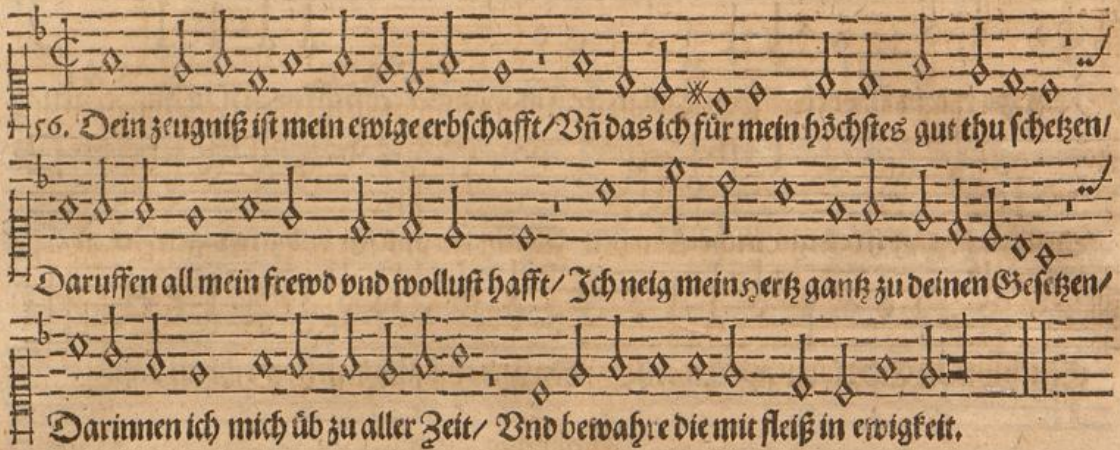 56. Dein zeugniß ist mein ewige erbschafft/ Vñ das ich für mein höchstes gut thu schetzen/
Daruffen all mein frewd vnd wollust hafft/ Ich neig mein hertz gantz zu deinen Gesetzen/
Darinnen ich mich üb zu aller Zeit/ Vnd bewahre die mit fleiß in ewigkeit.